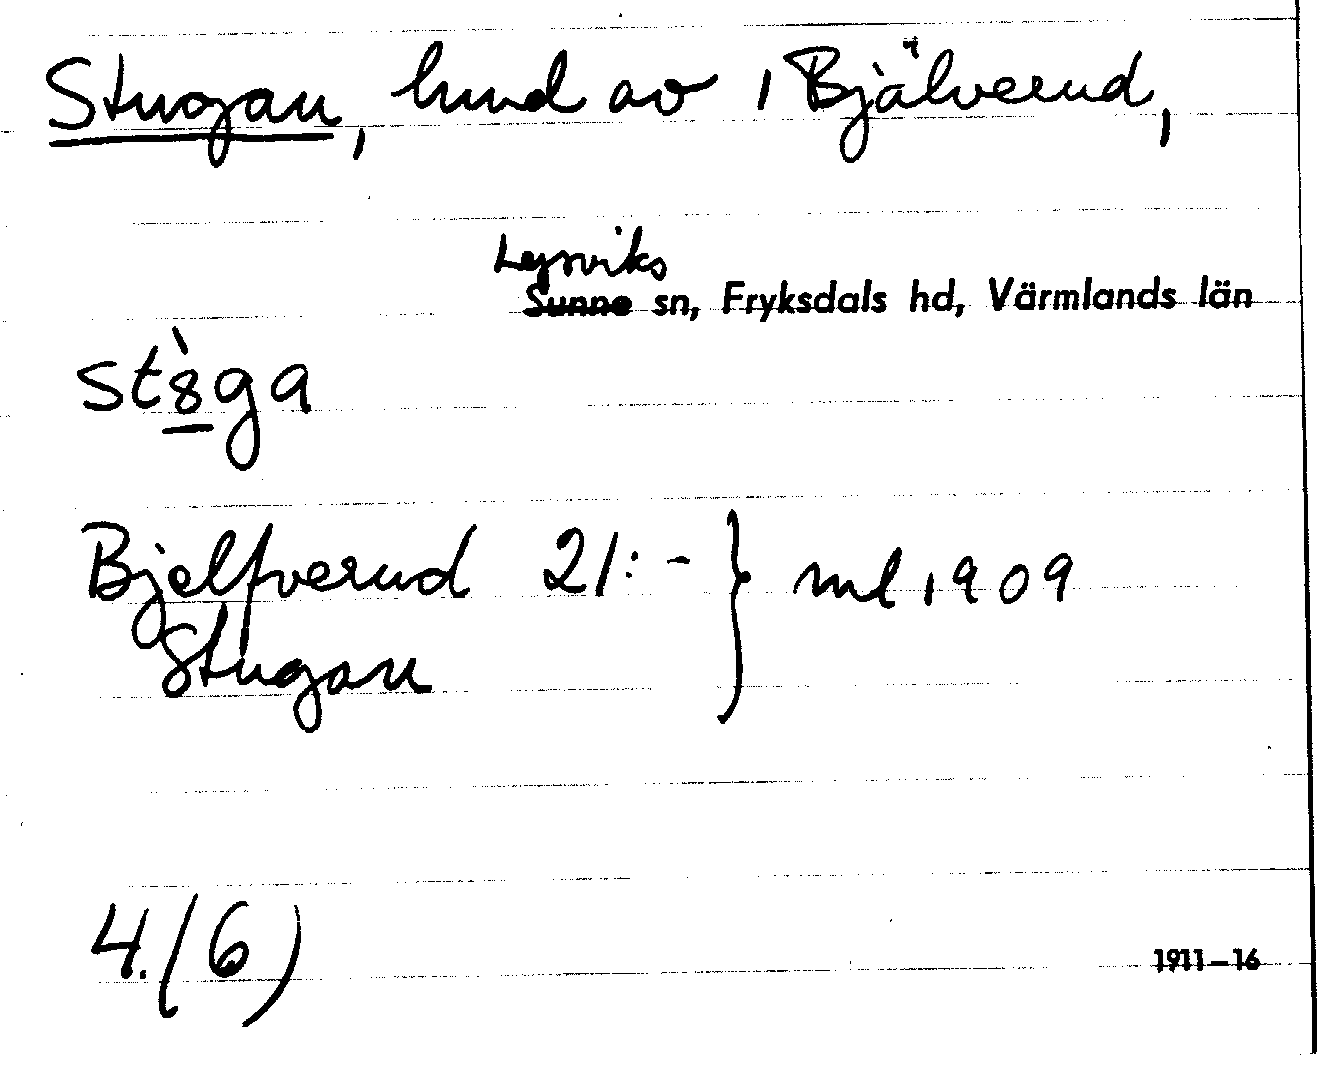 Stugan, hmd av 1 Bjälverud,
Lysviks
Sunne sn, Fryksdals hd, Värmlands län
st8̀ga
Bjelfverud 21:- } ml 1909
Stugan
4. (6)
1911–16